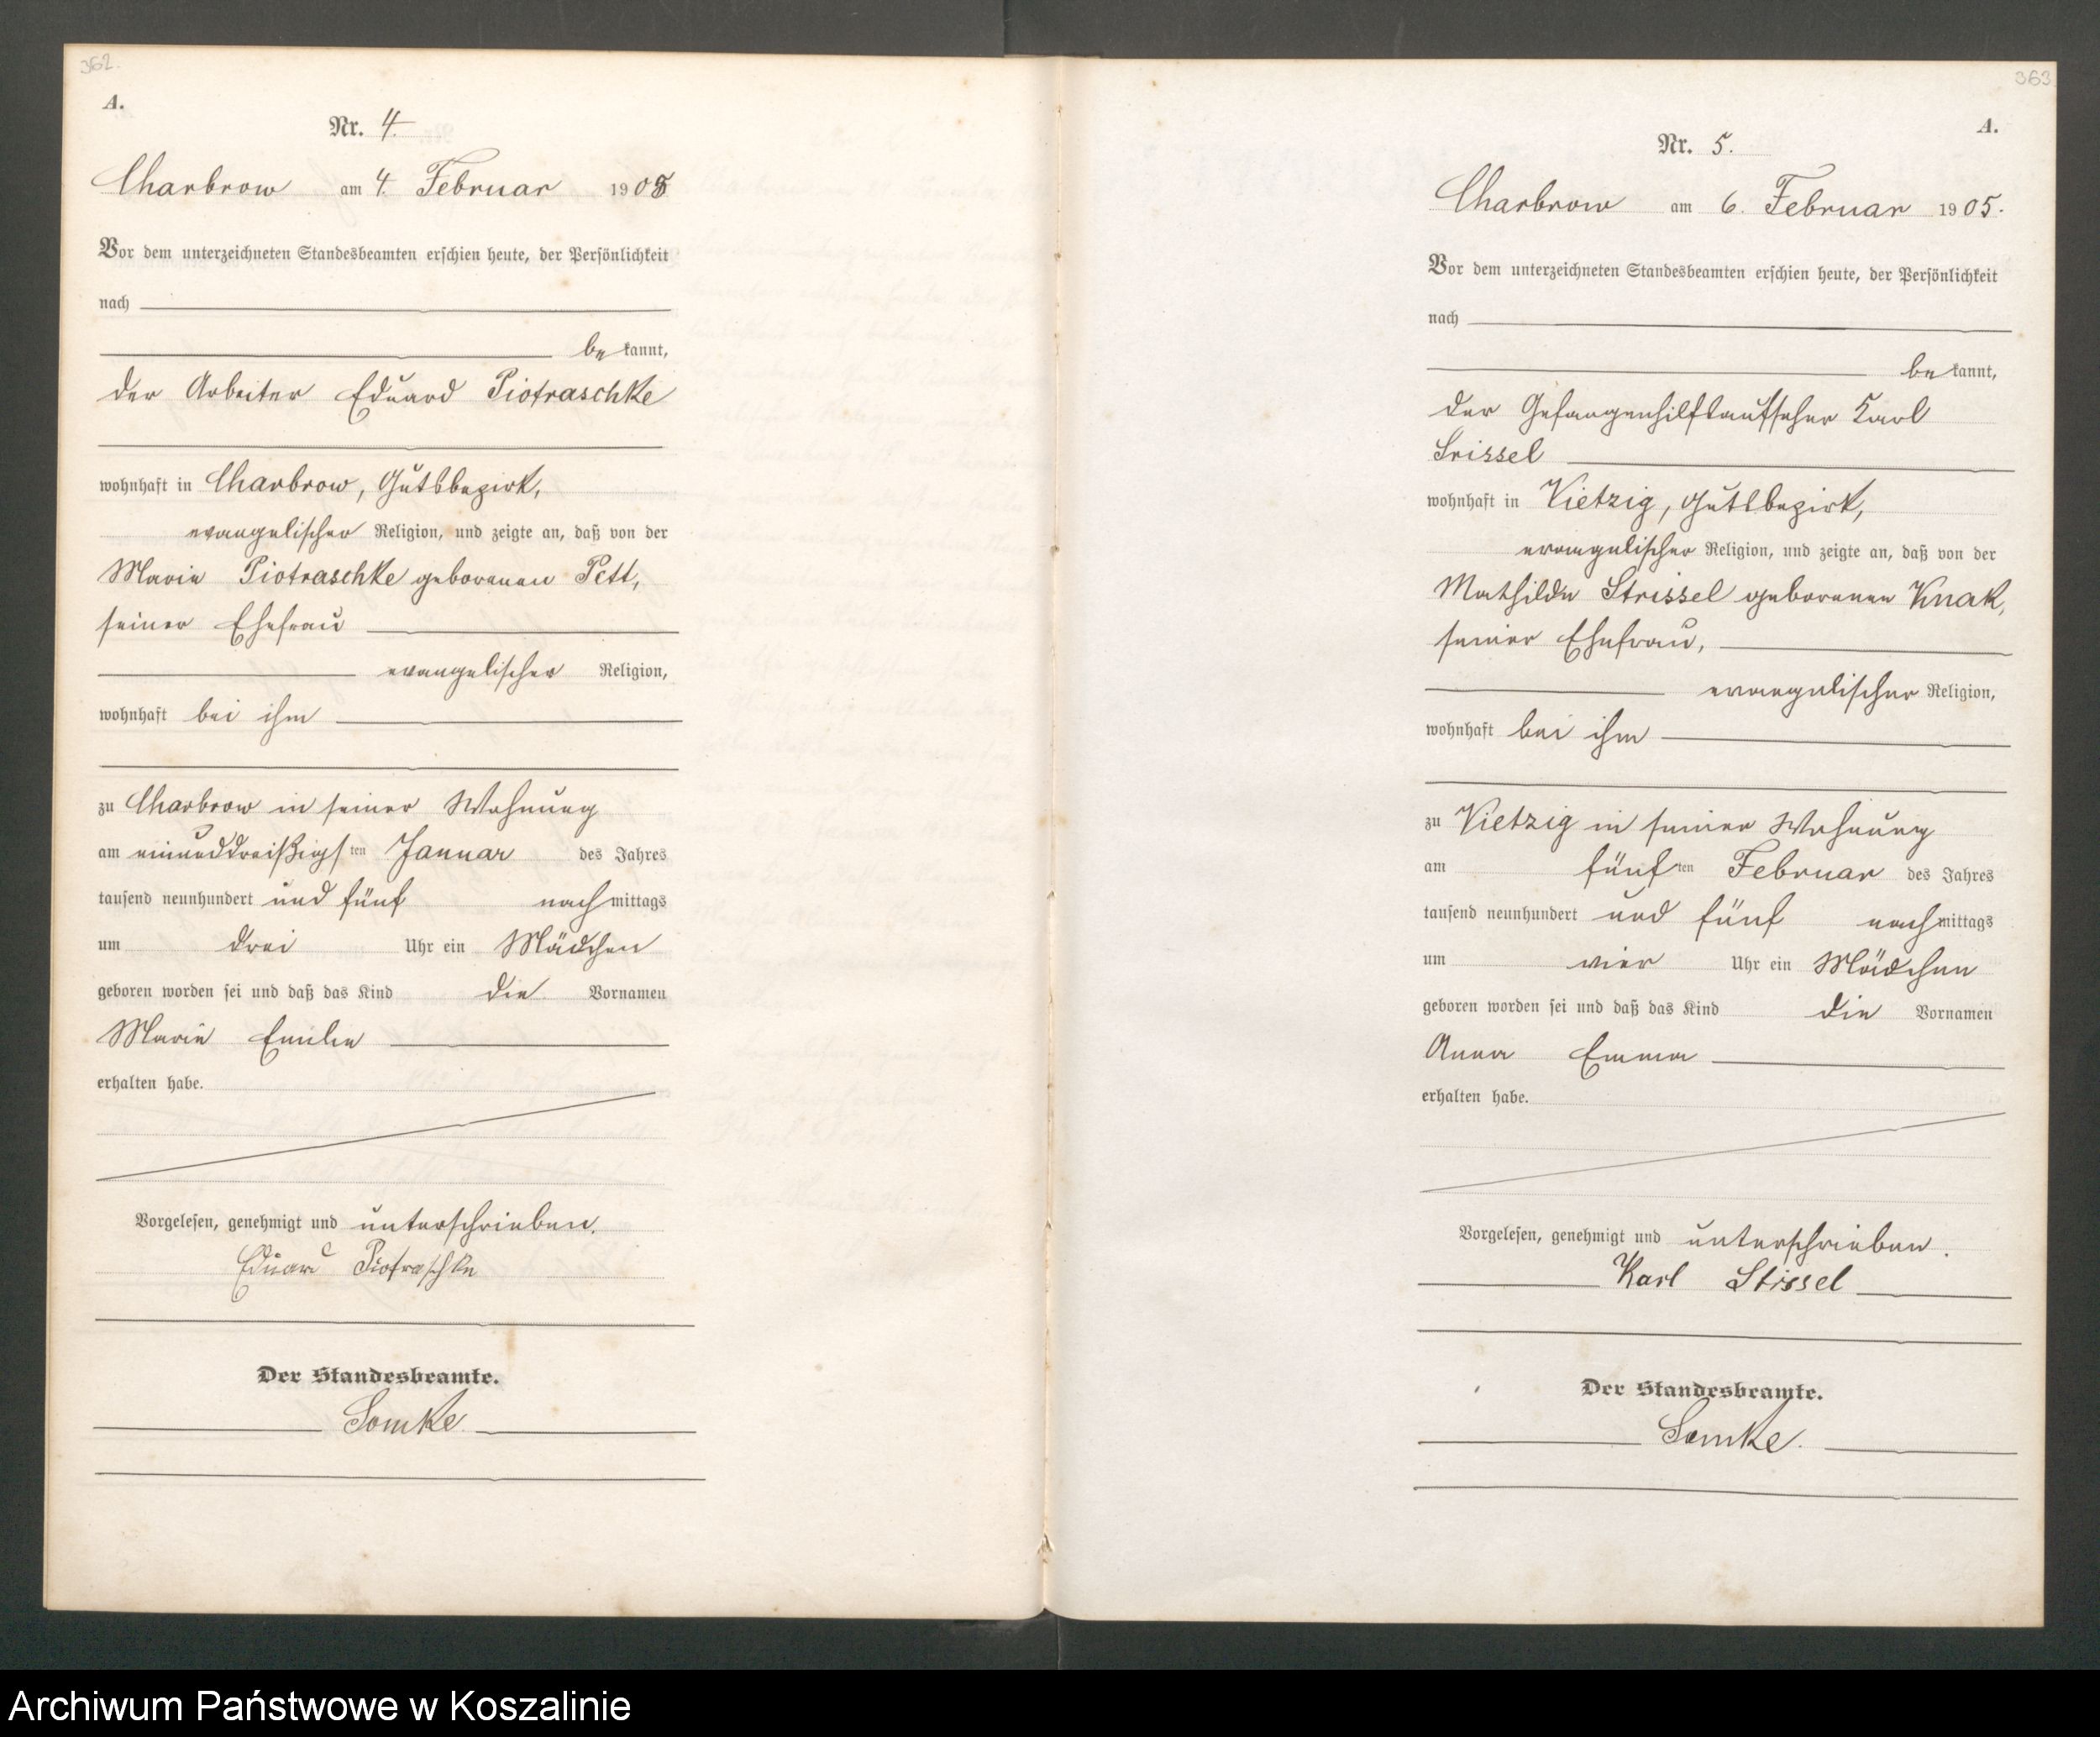 362.
A.
Nr. 4.
Charbrow am 4. Februar 1905
Vor dem unterzeichneten Standesbeamten erschien heute, der Persönlichkeit
nach
be kannt,
der Arbeiter Eduard Piotraschke
wohnhaft in Charbrow, Gutsbezirk,
evangelischer Religion, und zeigte an, daß von der
Marie Piotraschke geborenen Pett,
seiner Ehefrau
evangelischer Religion,
wohnhaft bei ihm
zu Charbrow in seiner Wohnung
am einunddreißigsten Januar des Jahres
tausend neunhundert und fünf nachmittags
um drei Uhr ein Mädchen
geboren worden sei und daß das Kind die Vornamen
Marie Emilie
erhalten habe.
Vorgelesen, genehmigt und unterschrieben.
Eduard Piotraschke
Der Standesbeamte.
363
A.
Nr. 5.
Charbrow am 6. Februar 1905.
Vor dem unterzeichneten Standesbeamten erschien heute, der Persönlichkeit
nach
be kannt,
der Gefangenhilfsaufseher Karl
wohnhaft in Vietzig, Gutsbezirk,
evangelischer Religion, und zeigte an, daß von der
Mathilde Strissel geborenen Knak,
seiner Ehefrau,
evangelischer Religion,
wohnhaft bei ihm
zu Vietzig in seiner Wohnung
am fünften Februar des Jahres
tausend neunhundert und fünf nachmittags
um vier Uhr ein Mädchen
geboren worden sei und daß das Kind die Vornamen
Anna Emma
erhalten habe.
Vorgelesen, genehmigt und unterschrieben.
Karl Strissel
Der Standesbeamte.
Archiwum Państwowe w Koszalinie